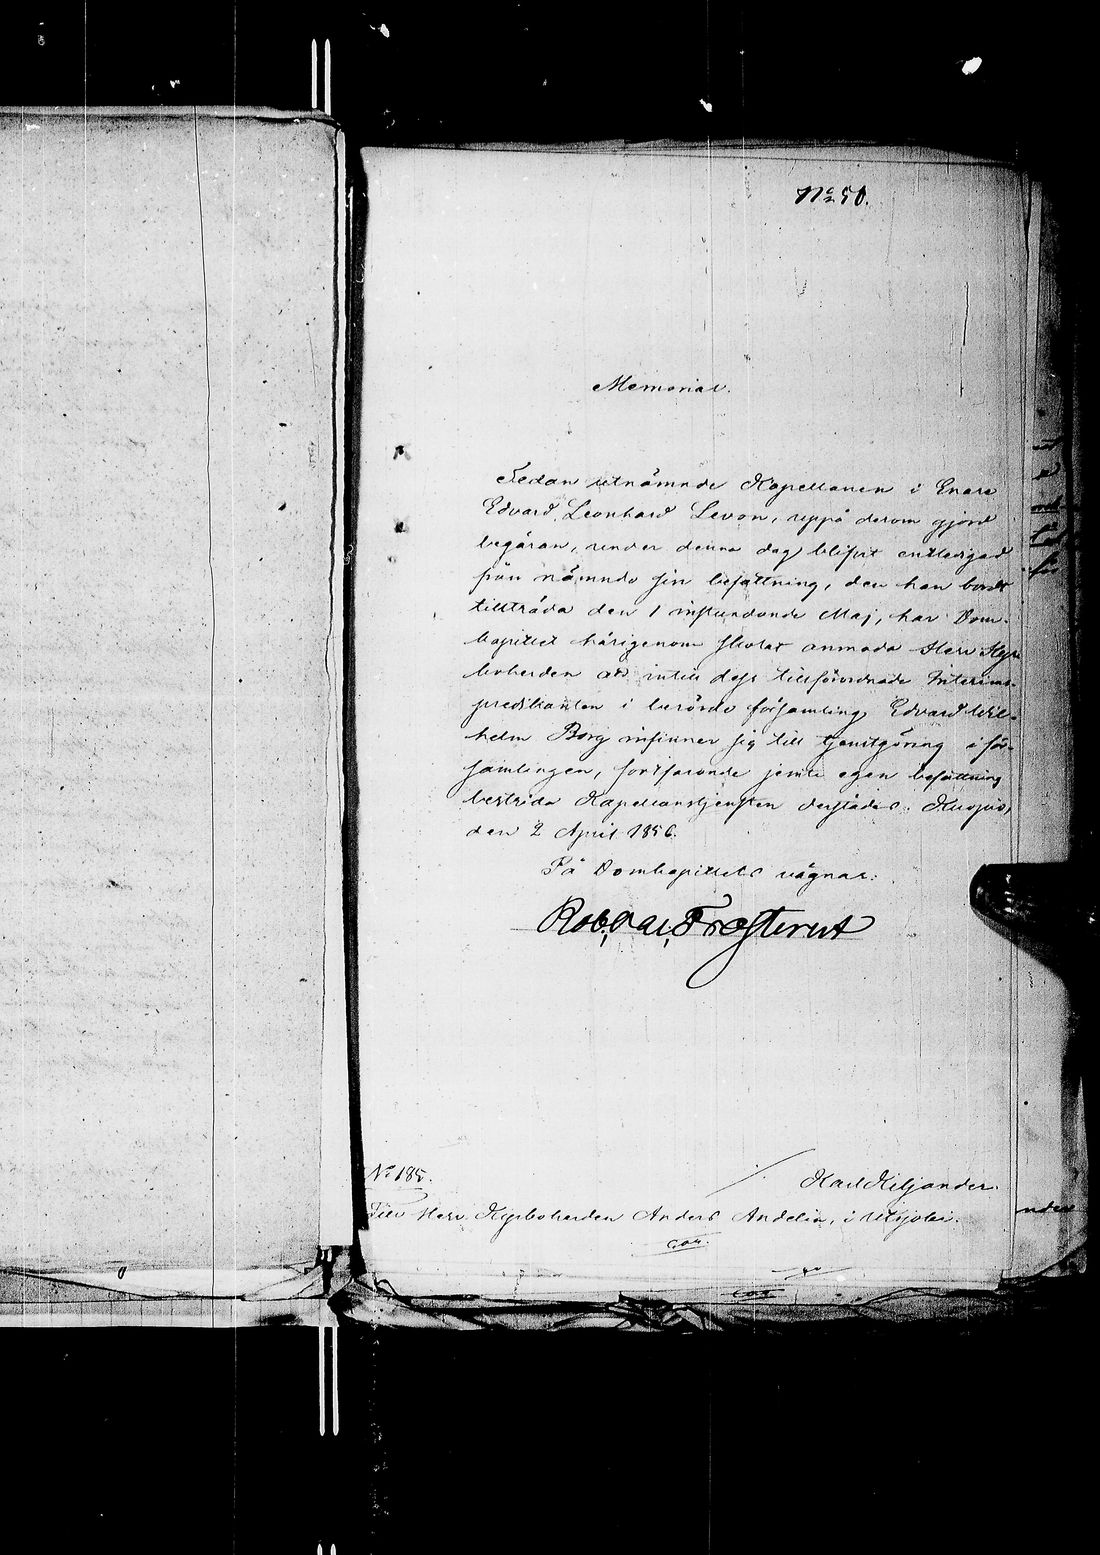 No 50.
Memorial.
Sedan utnämnde Kapellanen i Enare
Edvard Leonhard Levon, uppå derom gjord
begäran, under denna dag blifvit entledigad
från nämnde sin befattning, den han bordt
tillträda den 1 instundande Maj, har Dom-
kapitlet härigenom skolat anmoda Herr Kyr-
koherden att intill dess tillförordnade Interims-
predikanten i berörde församling Edvard Wil-
helm Borg infinner sig till tjenstgöring i för-
samlingen, fortfarande jemte egen befattning
bestrida Kapellanstjensten derstädes. Kuopio,
den 2 April 1856.
På Domkapitlets vägnar:
Rob. Val. Frosterus
No 185.
Karl Kiljander
Till Herr Kyrkoherden Anders Andelin, i Utsjoki.